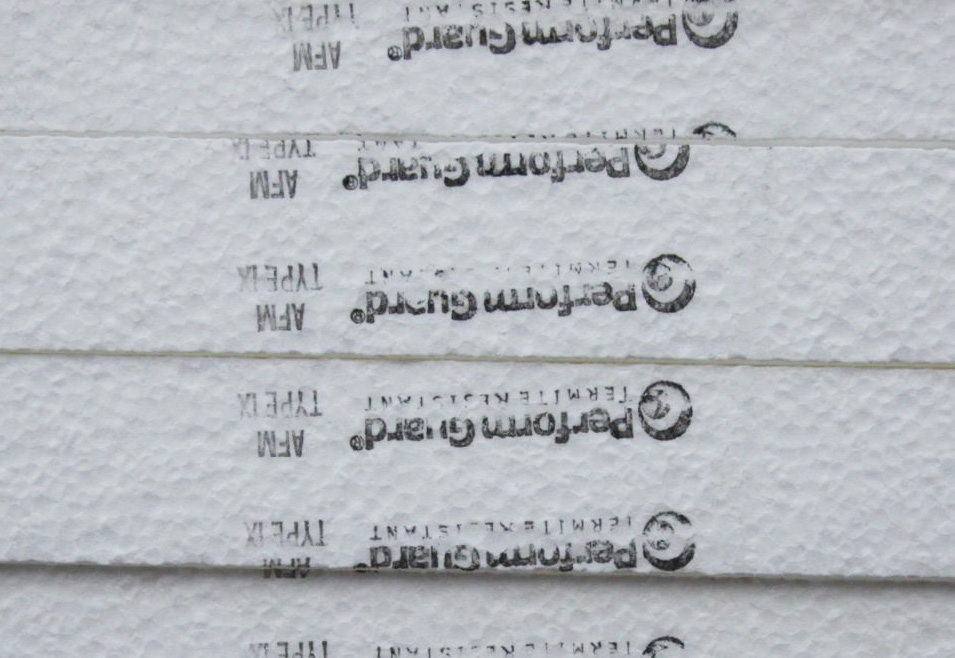 TERMITE RESISTANT TYPE IX
PerformGuard® AFM
TERMITE RESISTANT TYPE IX
PerformGuard® AFM
TERMITE RESISTANT TYPE IX
PerformGuard® AFM
TERMITE RESISTANT TYPE IX
PerformGuard® AFM
TYPE IX
PerformGuard® AFM
TERMITE RESISTANT TYPE IX